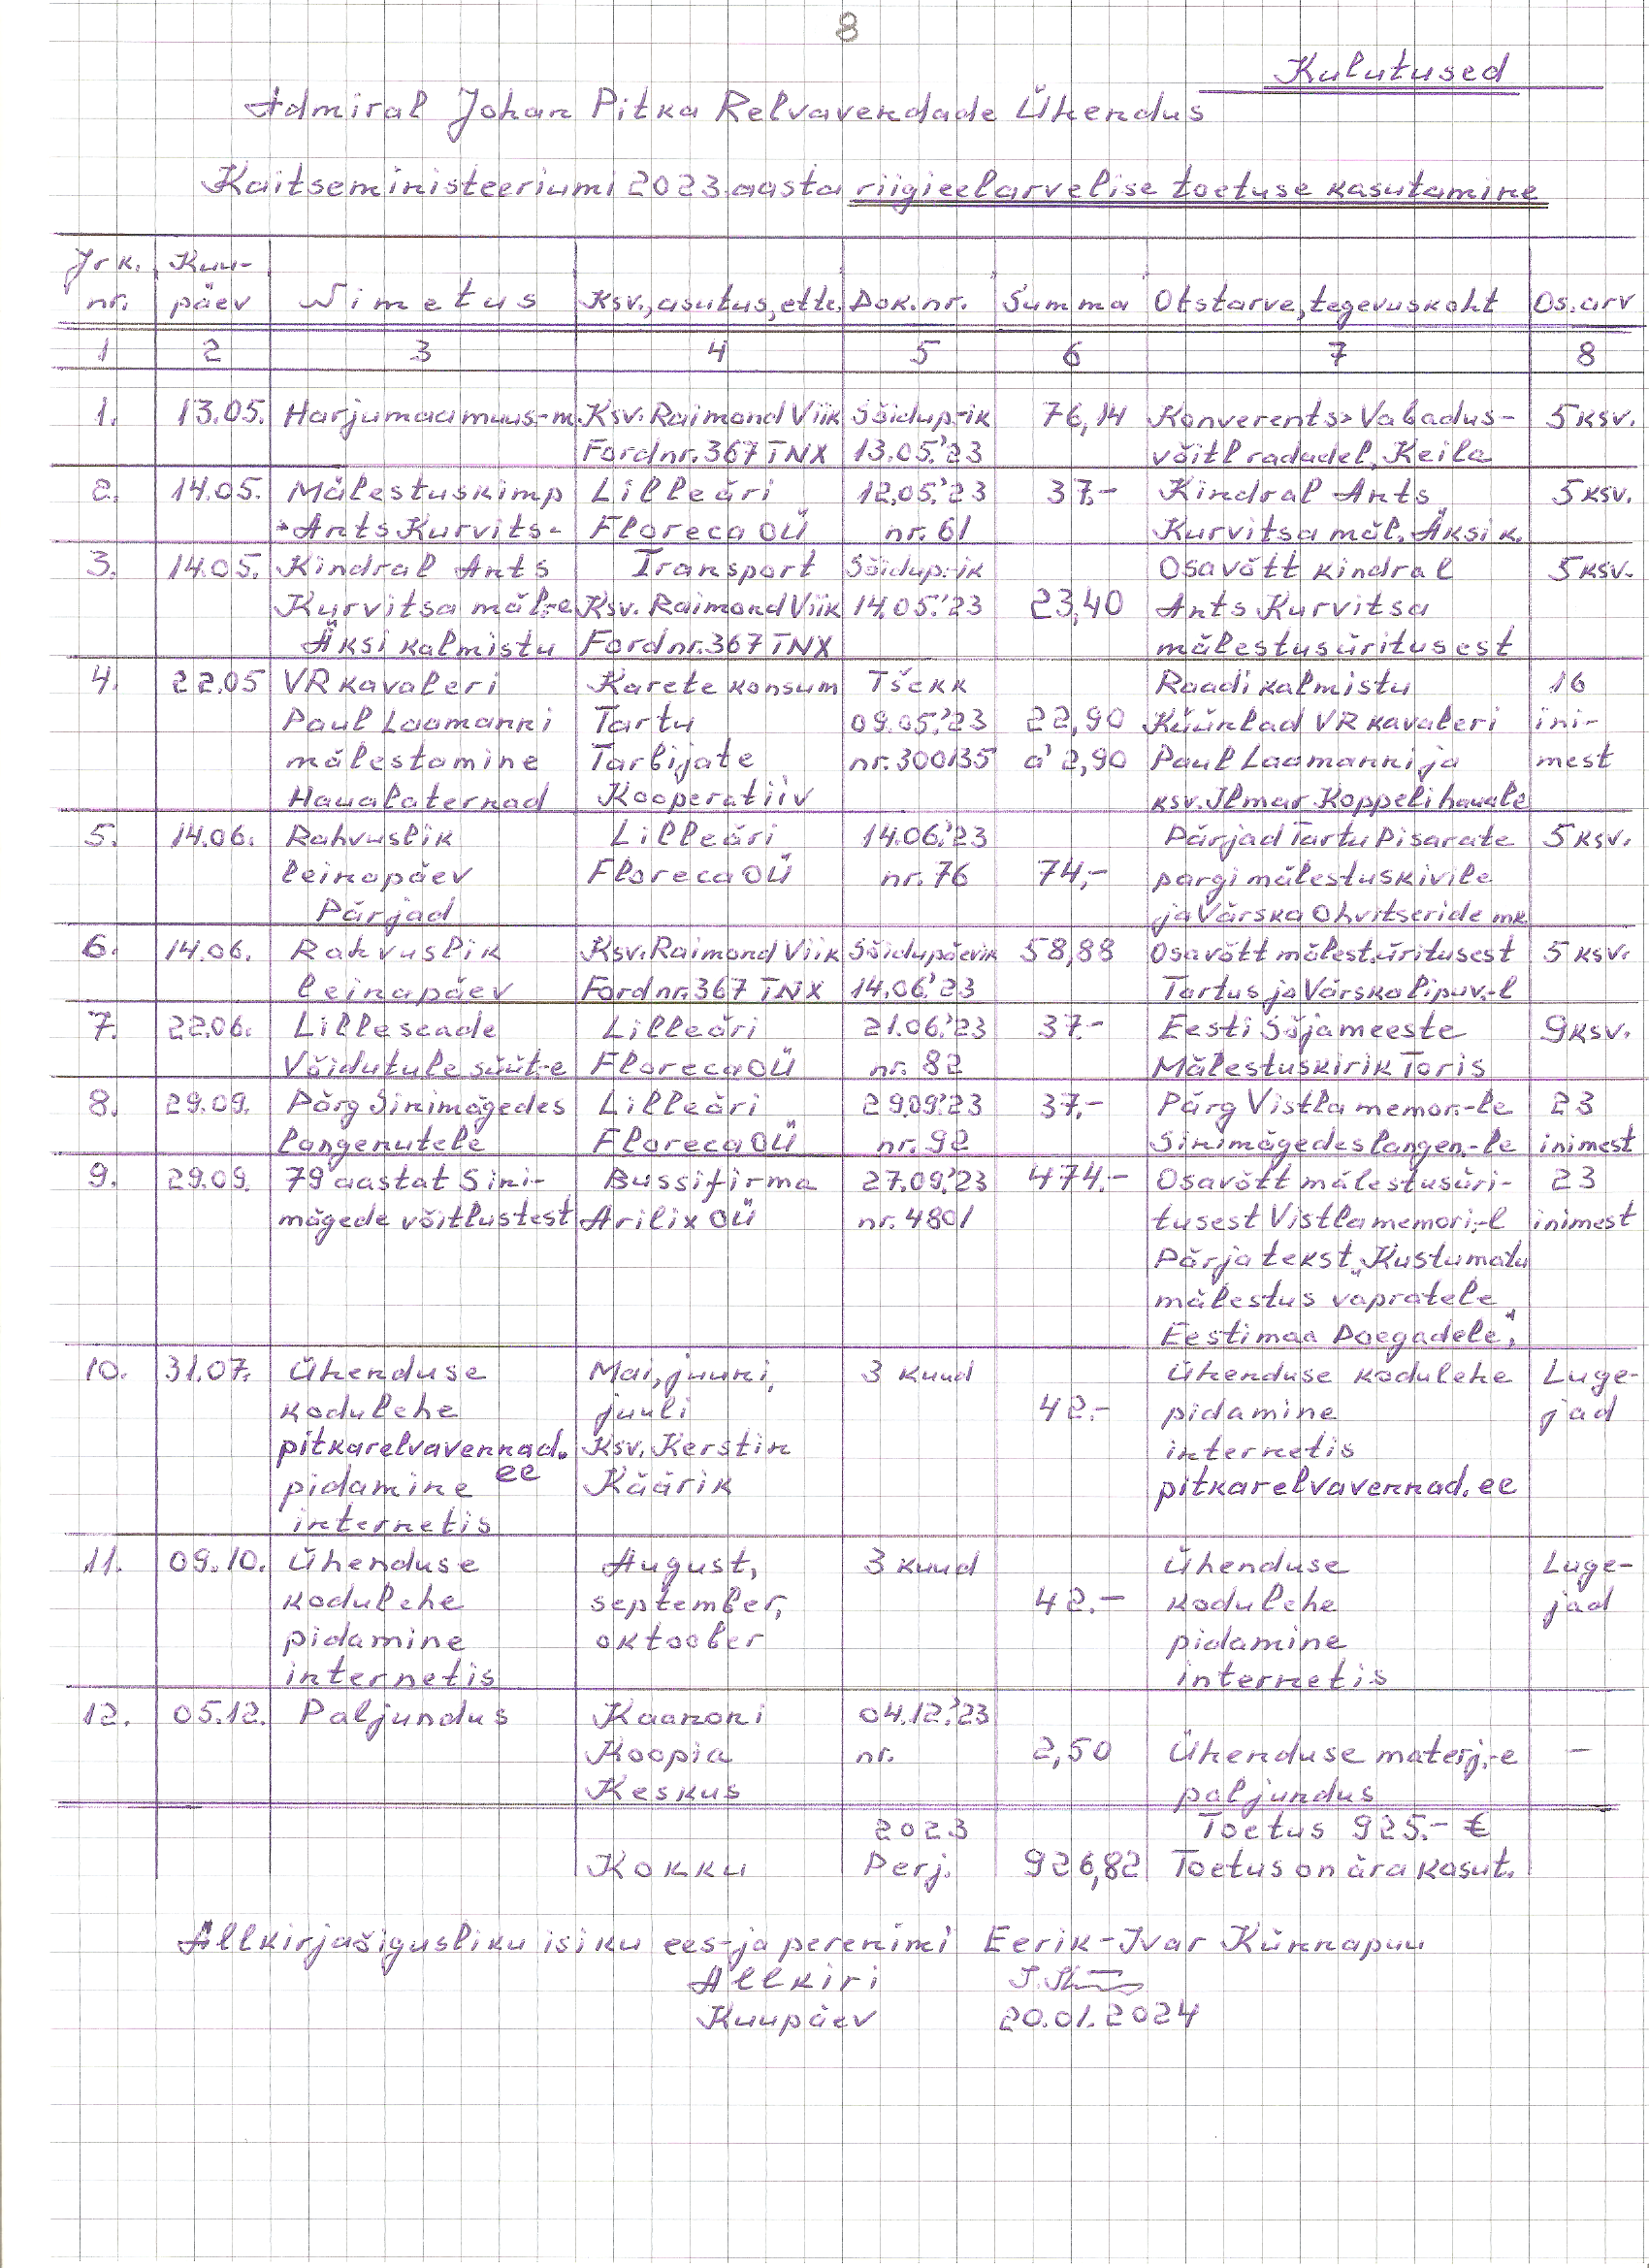 8
Kulutused
Admiral Johan Pitka Relvavendade Ühendus
Kaitseministeeriumi 2023.aasta riigieelarvelise toetuse kasutamine
Jrk. Kuu-
nr. päev Nimetus Ksv.,asutus,ette. Dok.nr. Summa Otstarve,tegevuskoht Os.arv
1 2 3 4 5 6 7 8
1. 13.05. Harjumaa muus-m Ksv. Raimond Viik Sõidup-ik 76,14 Konverents> Vabadus- 5 ksv.
Ford nr. 367 TNX 13.05.'23 võitl radadel, Keila
2. 14.05. Mälestuskimp Lilleäri 12.05.'23 37.- Kindral Ants 5 ksv.
Ants Kurvits- Floreca OÜ nr. 61 Kurvitsa mäl. Äksi k.
3. 14.05. Kindral Ants Transport Sõidup-ik Osavõtt kindral 5 ksv.
Kurvitsa mäl-e Ksv. Raimond Viik 14.05.'23 23,40 Ants Kurvitsa
Äksi kalmistu Ford nr. 367 TNX mälestusüritusest
4. 22.05 VR kavaleri Karete konsum Tšekk Raadi kalmistu 16
Paul Laamanni Tartu 09.05.'23 22,90 Küünlad VR kavaleri ini-
mälestamine Tarbijate nr. 300135 a' 2,90 Paul Laamanni ja mest
Haualaternad Kooperatiiv ksv. Ilmar Koppeli hauale
5. 14.06. Rahvuslik Lilleäri 14.06.'23 Pärjad Tartu Pisarate 5 ksv.
leinapäev Floreca OÜ nr. 76 74,- pargi mälestuskivile
Pärjad ja Värska Ohvitseride mk.
6. 14.06. Rahvuslik Ksv. Raimond Viik Sõidupäevik 58,88 Osavõtt mälest.üritusest 5 ksv.
leinapäev Ford nr. 367 TNX 14.06.'23 Tartus ja Värska lipuv.-l
7. 22.06. Lilleseade Lilleäri 21.06.'23 37.- Eesti Sõjameeste 9 ksv.
Võidutule süüt-e Floreca OÜ nr. 82 Mälestuskirik Toris
8. 29.09. Pärg Sinimägedes Lilleäri 29.09.'23 37.- Pärg Vistla memor.-le 23
langenutele Floreca OÜ nr. 92 Sinimägedes langen.-le inimest
9. 29.09. 79 aastat Sini- Bussifirma 27.09.'23 474.- Osavõtt mälestusüri- 23
mägede võitlustest Arilix OÜ nr. 4801 tusest Vistla memori.-l inimest
Pärja tekst „Kustumatu
mälestus vapratele
Eestimaa Poegadele".
10. 31.07. Ühenduse Mai, juuni, 3 kuud Ühenduse kodulehe Luge-
kodulehe juuli 42.- pidamine jad
pitkarelvavennad. Ksv. Kerstin internetis
pidamine ee Käärik pitkarelvavennad.ee
internetis
11. 09.10. Ühenduse August, 3 kuud Ühenduse Luge-
kodulehe september, 42.- kodulehe jad
pidamine oktoober pidamine
internetis internetis
12. 05.12. Paljundus Kaanoni 04.12.'23
Koopia nr. 2,50 Ühenduse materj.-e -
Keskus paljundus
2023 Toetus 925.- €
Kokku Perj. 926,82 Toetus on ära kasut.
Allkirjaõigusliku isiku ees- ja perenimi Eerik-Ivar Künnapuu
Allkiri
Kuupäev 20.01.2024